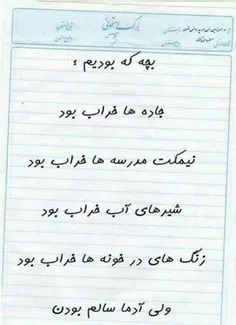 برگ امتحانی
بچه که بودیم :
جاده ها خراب بود
نیمکت مدرسه ها خراب بود
شیرهای آب خراب بود
زنگ های در خونه ها خراب بود
ولی آدما سالم بودن